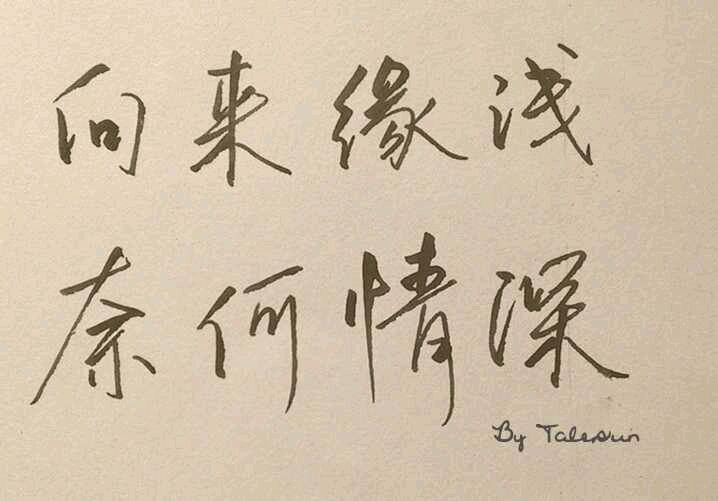 向来缘浅
奈何情深
By Talesun